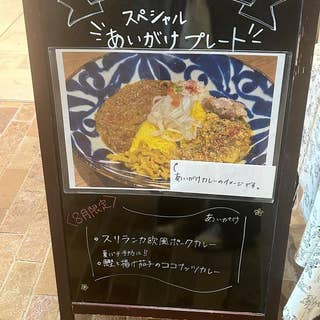 スペシャル
あいがけプレート
あいがけカレーのイメージです。
〈8月限定〉
あいがけ
スリランカ欧風ポークカレー
鰹と揚げ茄子のココナッツカレー